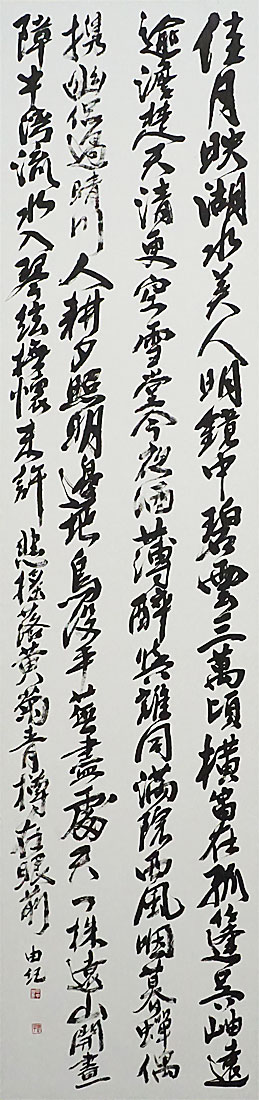 佳月映湖水美人明鏡中碧雲三萬頃橫笛在孤篷吳岫遠
逾澹楚天清更空雪堂今夜酒薄醉與誰同滿院西風咽暮蟬偶
携幽侶過晴川人耕夕照明邊地鳥沒平蕪盡處天一株遠山開畫
障半灣流水入琴弦攄懷未許悲搖落黃菊青樽在眼前
由紀